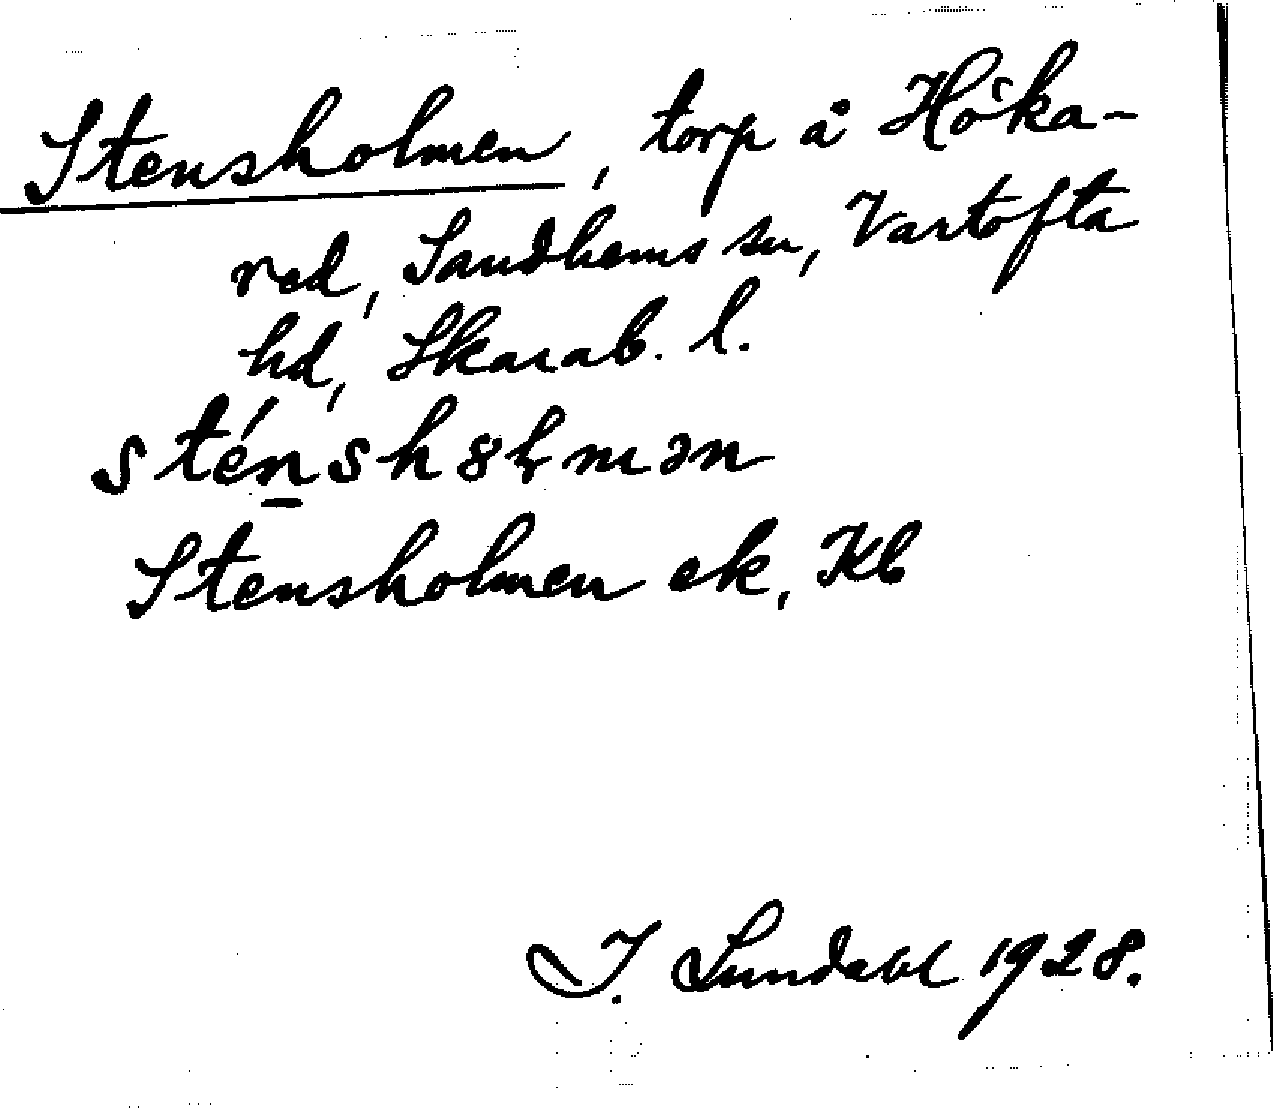 Stensholmen, torp å Höka-
red, Sandhems sn, Vartofta
hd, Skarab. l.
sténsh8lmən
Stensholmen ek, Kb
I. Lundahl 1928.